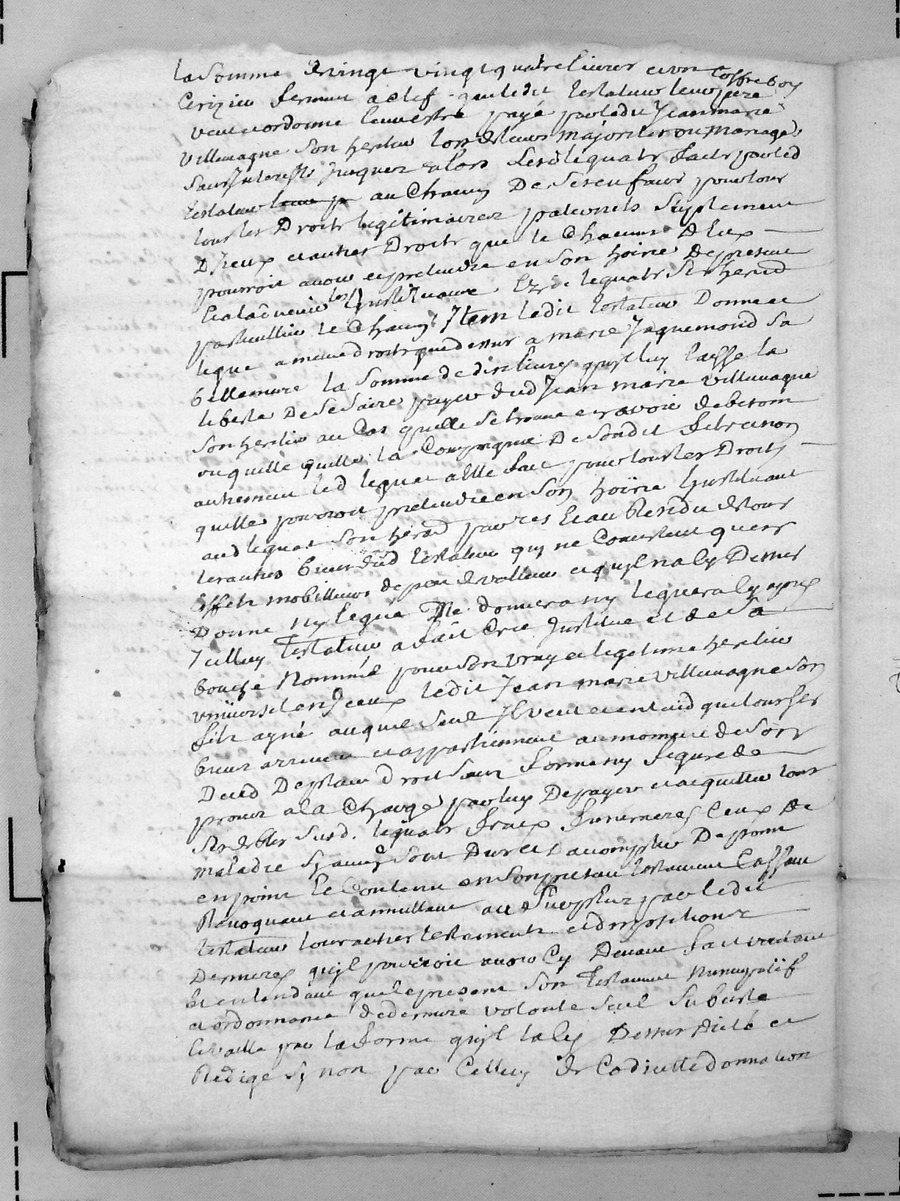 la Somme de vingt vingt quatre livres et un Coffre boy
Cerizier fermant a clef que ledit testateur
veut et ordonne leur estre payé par ledit Jean marie
villemagne son heritier lors de leurs majorites ou mariages
sans Interests jusques alors legats faits par led
testateur au Chacun De ses enfans pour tous
tous les Droits legitimaires paternels suplement
Dyceux et autres Droits que le Chacun deux
pourroit avoir et pretendre en son hoirie De presant
Et aladvenir les Instituant Ezd legats Ses herits
particulliers le Chacun Item ledit testateur Donne et
legue a mesme droits que dessus a marie Jaquemond sa
bellemere la Somme de dix livres quil luy laisse la
liberte De se faire payer dud Jean marie villemagne
son heritier au Cas quelle se trouve en avoir de besoin
ou quelle quitte la Compagnie De sondit fils et non
autrement led legat a Elle fait pour tous les Droits
quelle pourroit pretendre en son hoirie Linstituant
aud legat son herit par Et au Residu de tous
les autres biens dud testateur quy ne Consistent quen
Effets mobilliers de peu de valleur et quil na Cy Dessus
Donné ny legué Ne donnera ny leguera Cy apres
Icelluy testateur a fait Cree Institué et de Sa
bouche Nommé pour son vray et legitime heritier
universel en Iceux ledit Jean marie villemagne son
fils ayné auquel seul Il veut et entend que tous ses
biens arrivent et appartiennent au moment de son
Deced De plain Droit sans forme ny figure de
procez a la Charge par luy De payer et acquitter tous
ses debtes susd. legats fraix funeraires Ceux De
maladie Et daccomplir De point
en point le Contenu en son present testament Cassant
Revoquant et annullant au Surplus par ledit
testateur tous autres testaments et dispositions
Dernieres quil pourroit avoir Cy Devant fait
Et entendant que le present son testament Nuncupatif
et ordonnance de derniere volonté seul Subciste
Et vaille par la forme quil la Cy Dessus dicté et
Redigé Sy non par Celluy de Codicille donnation